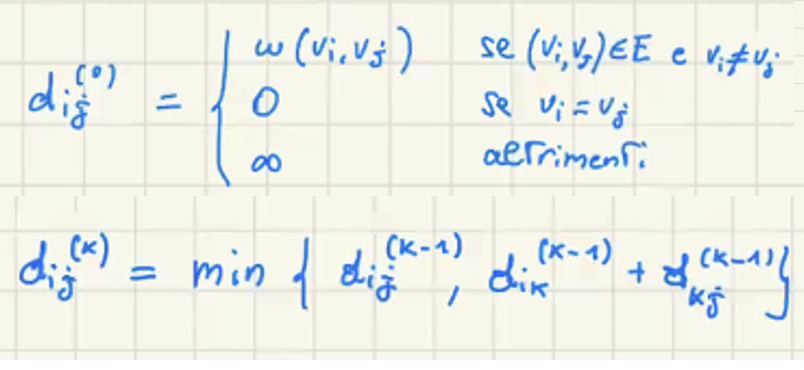 d_{ij}^{(0)} = { ω(v_i, v_j) se (v_i, v_j) ∈ E e v_i ≠ v_j
0 se v_i = v_j
∞ altrimenti
d_{ij}^{(k)} = min { d_{ij}^{(k-1)}, d_{ik}^{(k-1)} + d_{kj}^{(k-1)} }